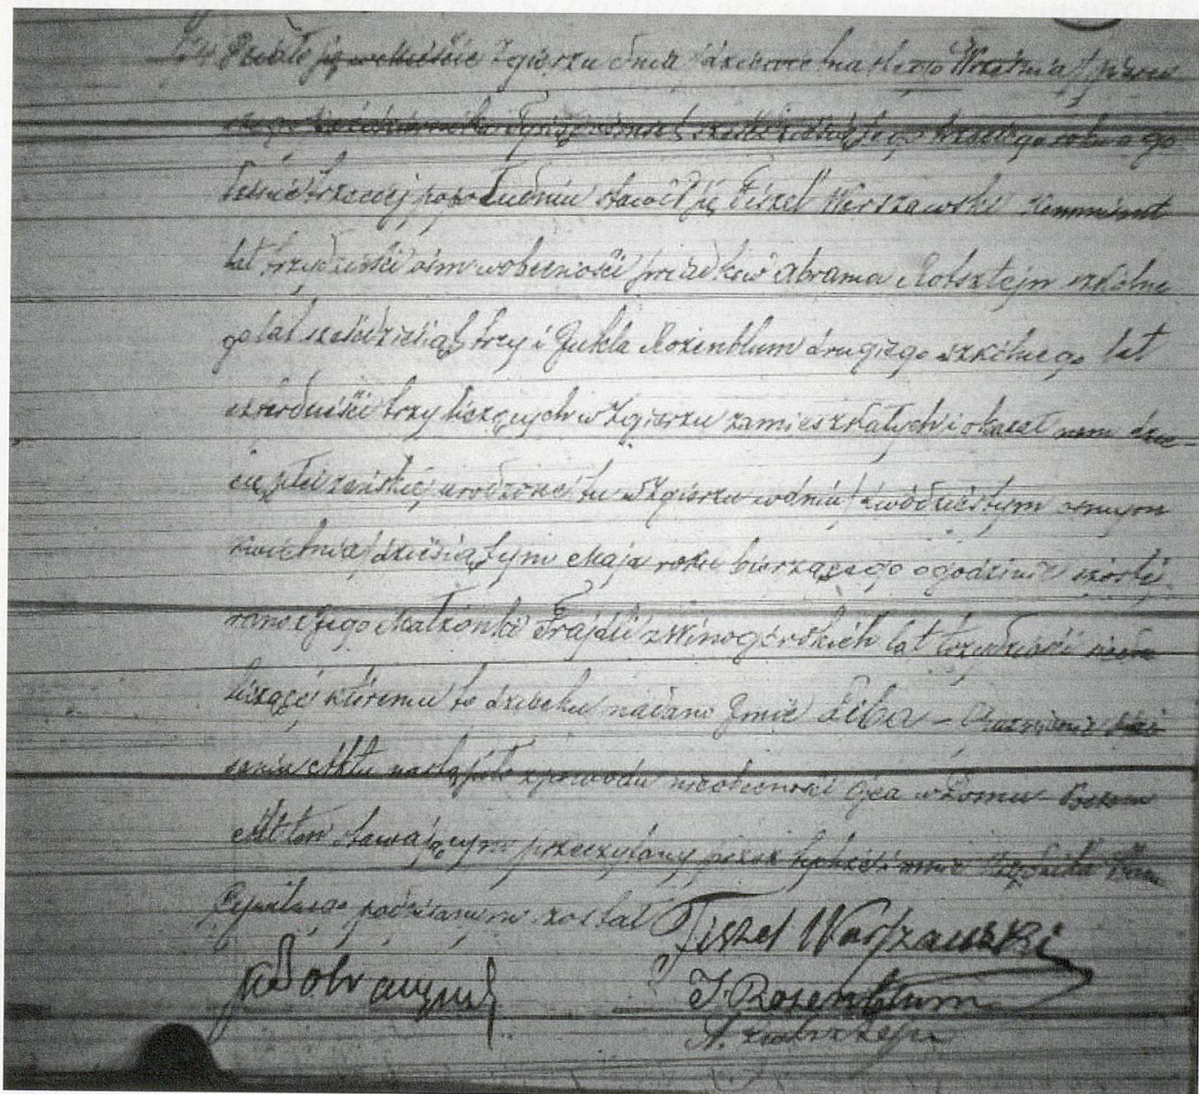 Działo się w Mieście Zgierzu dnia Września / pierw
szego Października / Tysiąc ośmset sześćdziesiątego trzeciego roku o go
dzinie trzeciej po południu stawił się Fiszel Warszawski
lat trzydzieści ośm w obecności świadków Abrama Rotsztejn szkolne
go lat sześćdziesiąt trzy i Jukla Rozenblum drugiego szkolnego lat
czterdzieści trzy liczących w Zgierzu zamieszkałych i okazał nam dzie-
cię płci żeńskiej urodzone tu w Zgierzu w dniu / dwódziestym ósmym
Kwietnia / dziesiątym Maja roku bieżącego o godzinie szóstej
rano z Jego Małżonki Frajdli z Winogórskich lat trzydzieści
liczącej któremu to dziecku nadano Imie Liba –
Aktu nastąpiło z powodu nieobecności Ojca w Domu
Akt ten stawającym przeczytany przez Urzędnika Stanu
Cywilnego podpisanym został Fiszel Warszawski
J. Rozenblum
A.